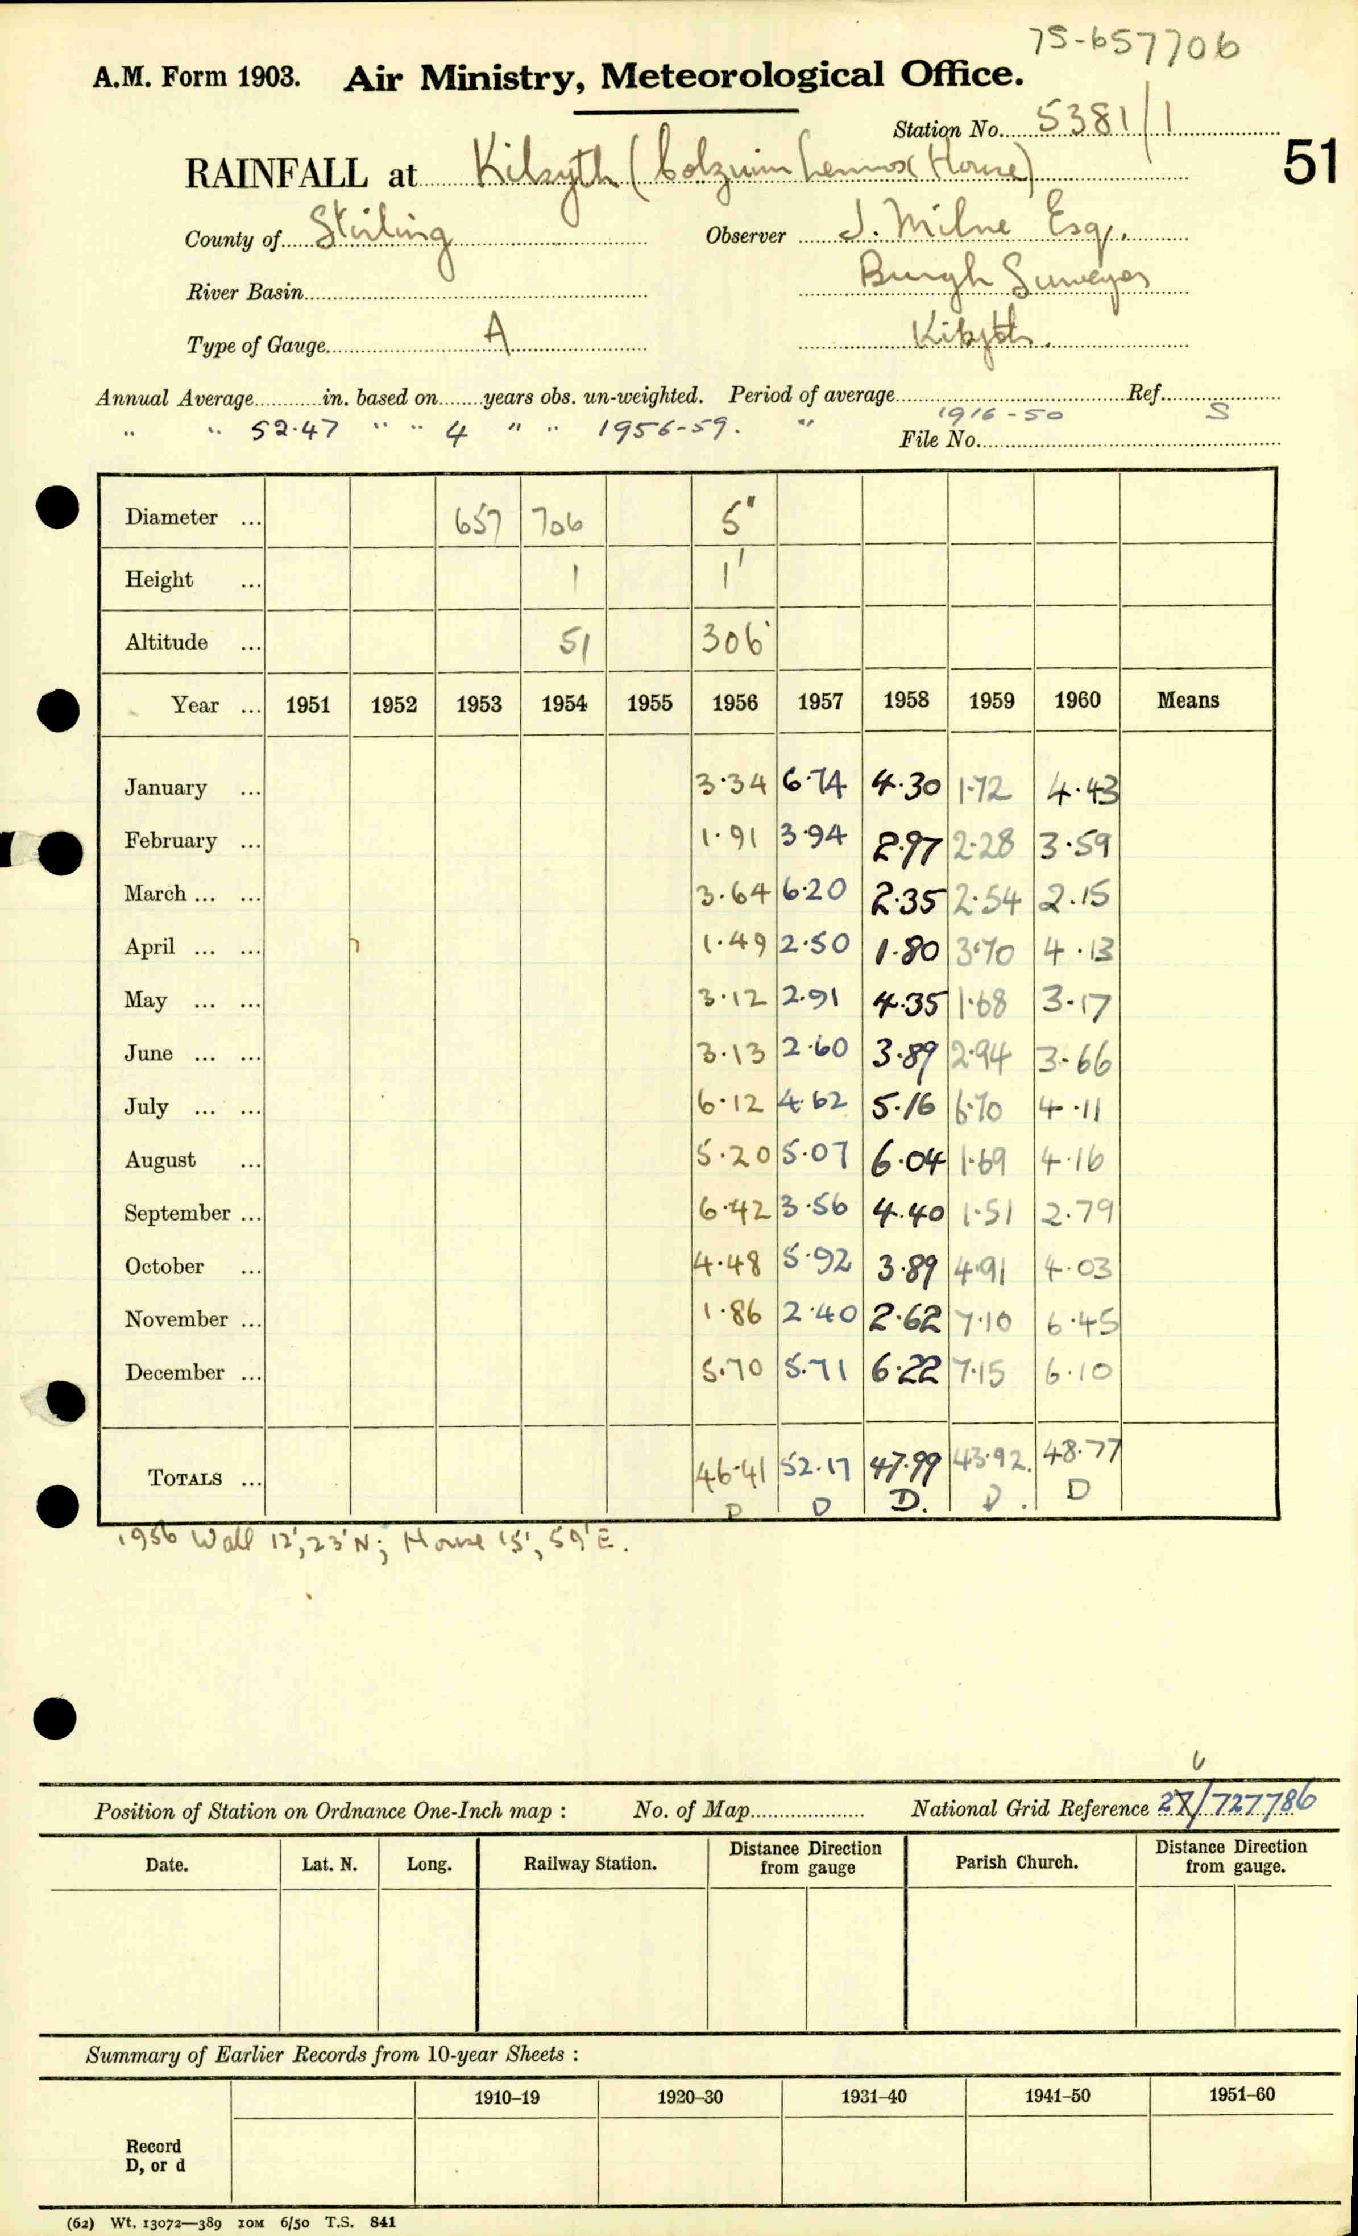 75-657706
A.M. Form 1903. Air Ministry, Meteorological Office.
Station No. 5381/1
51
RAINFALL at Kilsyth (Colzium Lennox House)
County of Stirling Observer J. Milne Esq.
River Basin Burgh Surveyor
Type of Gauge A Kilsyth.
Annual Average in. based on years obs. un-weighted. Period of average Ref.
" " 52.47 " " 4 " " 1956-59. " 1916-50 S
File No.
Diameter ... 657 706 5"
Height ... 1 1'
Altitude ... 51 306'
Year ... 1951 1952 1953 1954 1955 1956 1957 1958 1959 1960 Means
January ... 3.34 6.74 4.30 1.72 4.43
February ... 1.91 3.94 2.97 2.28 3.59
March ... ... 3.64 6.20 2.35 2.54 2.15
April ... ... 1.49 2.50 1.80 3.70 4.13
May ... ... 3.12 2.91 4.35 1.68 3.17
June ... ... 3.13 2.60 3.89 2.94 3.66
July ... ... 6.12 4.62 5.16 6.70 4.11
August ... 5.20 5.07 6.04 1.69 4.16
September ... 6.42 3.56 4.40 1.51 2.79
October ... 4.48 5.92 3.89 4.91 4.03
November ... 1.86 2.40 2.62 7.10 6.45
December ... 5.70 5.71 6.22 7.15 6.10
TOTALS ... 46.41 52.17 47.99 43.92. 48.77
D D D. D. D
1956 Wall 12', 23'N; House 15', 59'E.
6
Position of Station on Ordnance One-Inch map : No. of Map National Grid Reference 27/727786
Date. Lat. N. Long. Railway Station. Distance Direction from gauge Parish Church. Distance Direction from gauge.
Summary of Earlier Records from 10-year Sheets :
1910–19 1920–30 1931–40 1941–50 1951–60
Record
D, or d
(62) Wt. 13072—389 10M 6/50 T.S. 841